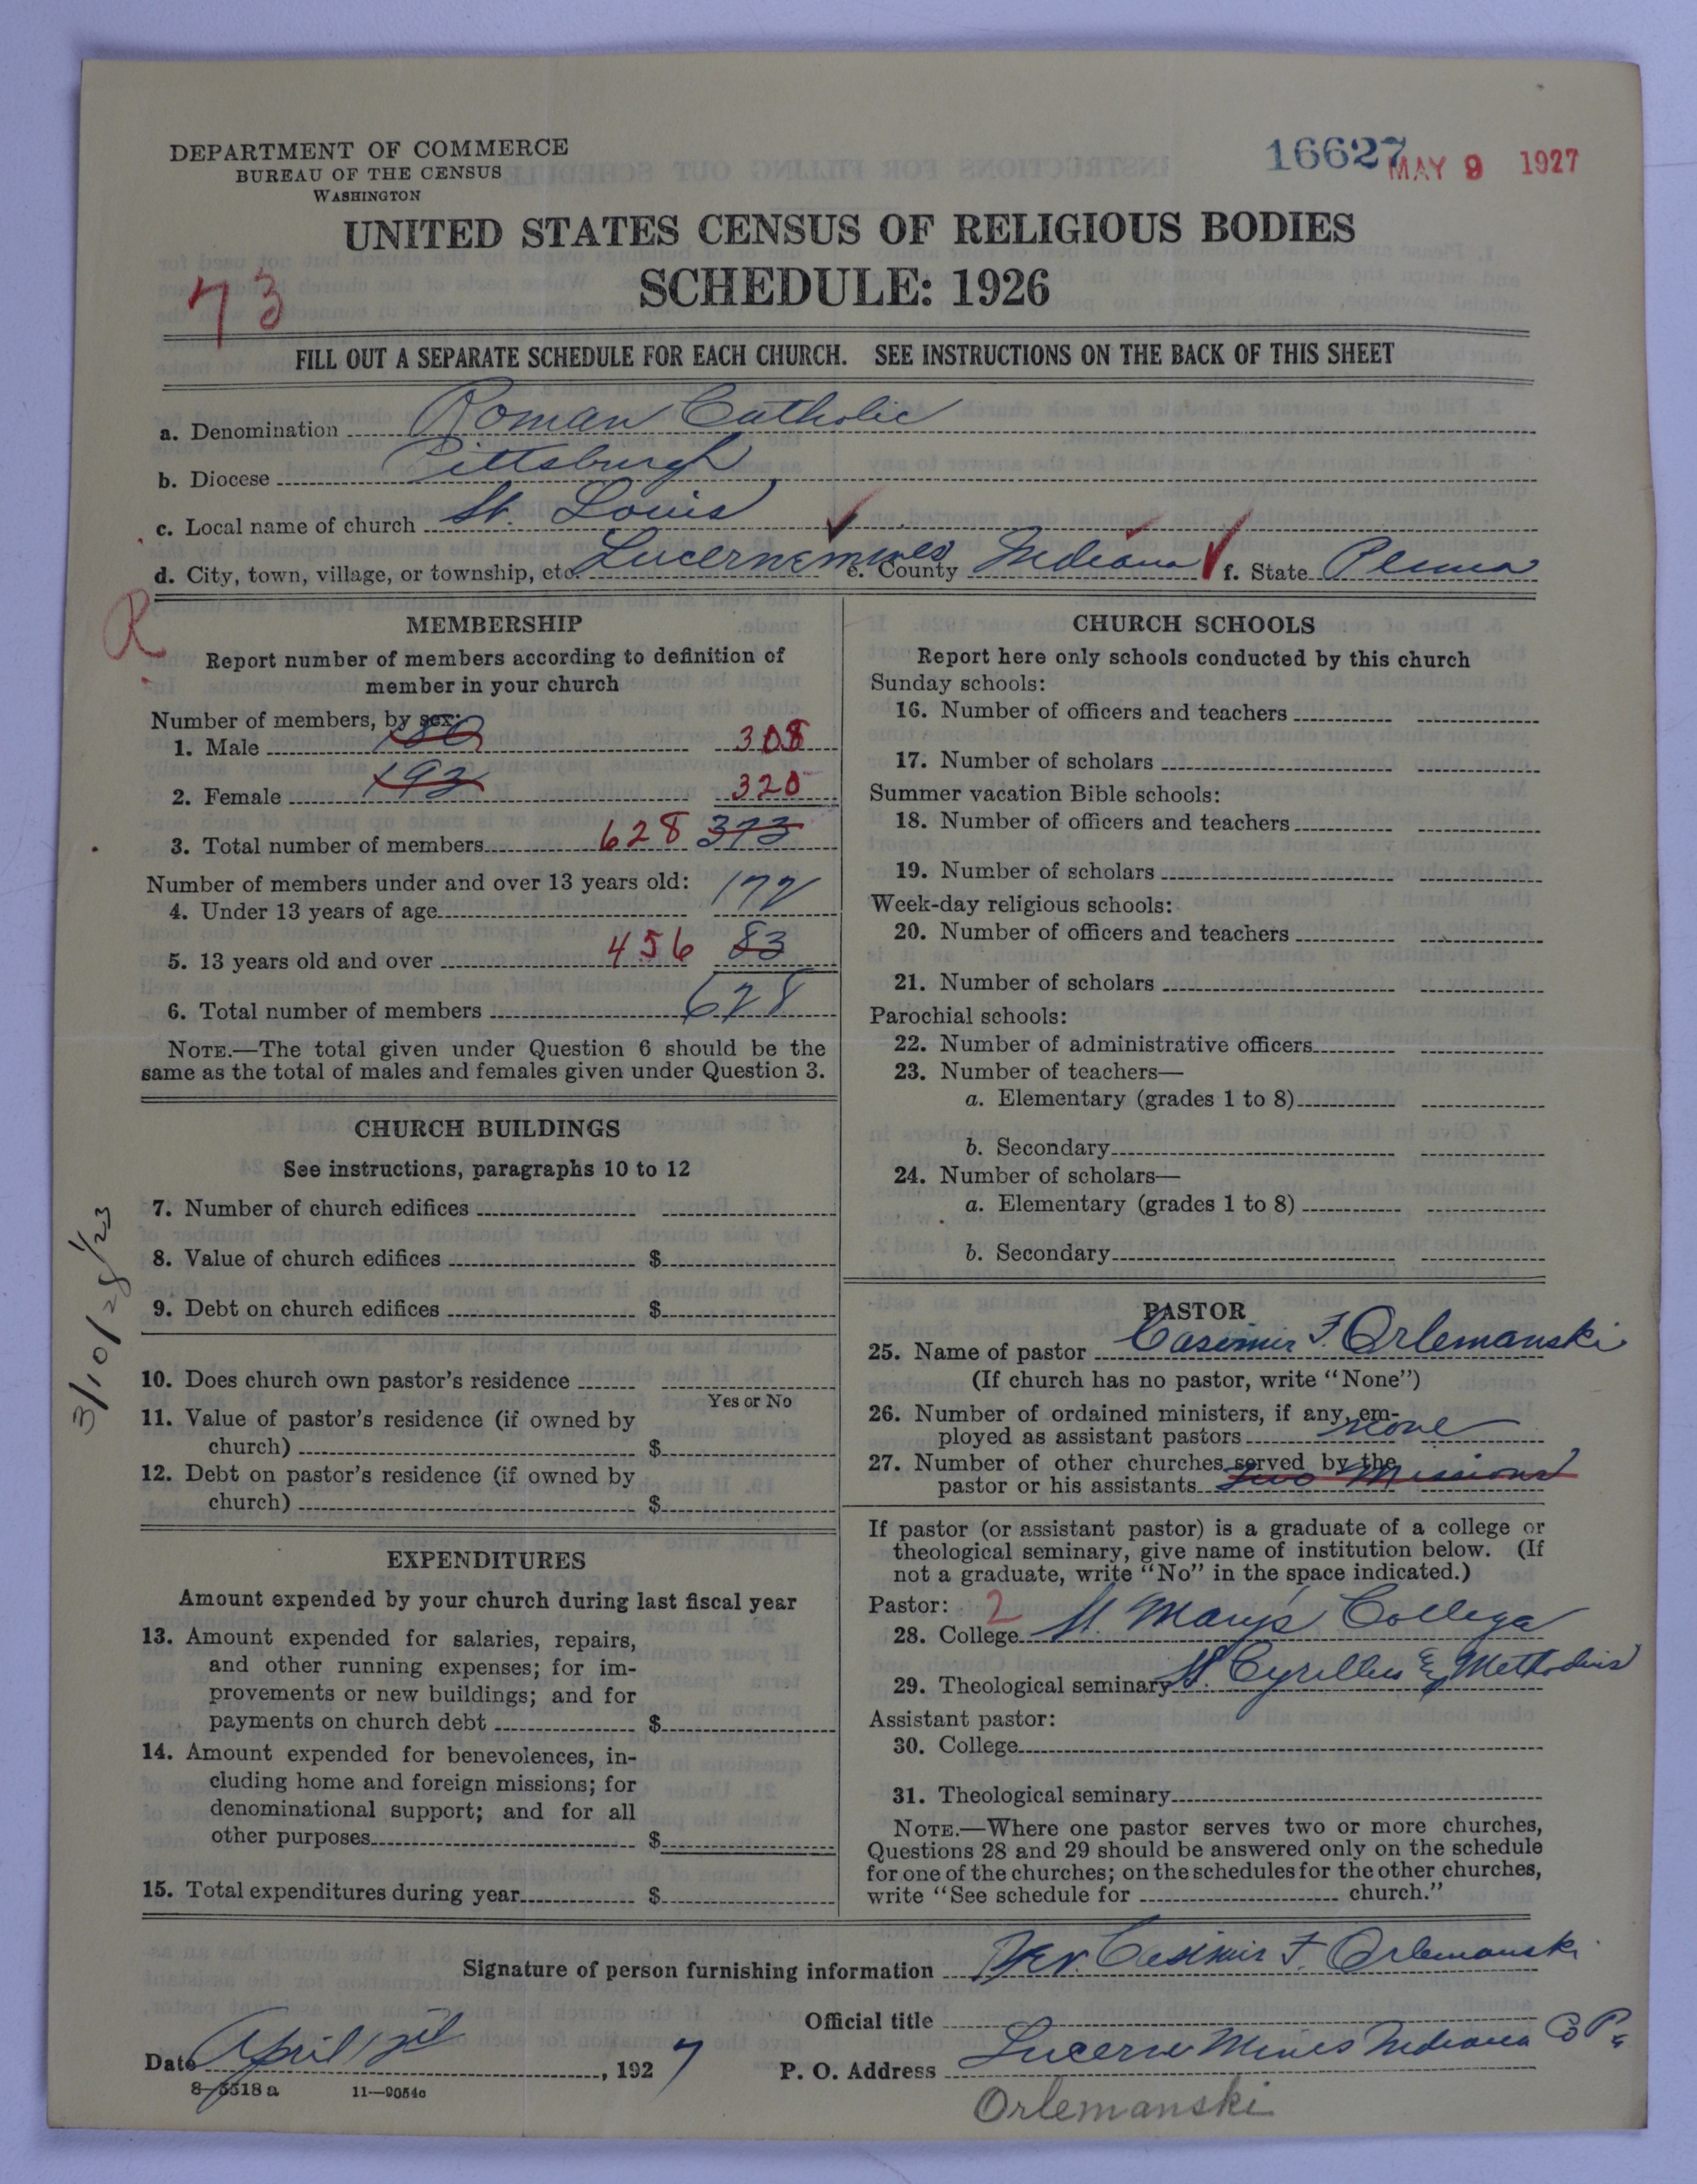 DEPARTMENT OF COMMERCE
BUREAU OF THE CENSUS
WASHINGTON
16627 MAY 9 1927
UNITED STATES CENSUS OF RELIGIOUS BODIES
SCHEDULE: 1926
73
FILL OUT A SEPARATE SCHEDULE FOR EACH CHURCH. SEE INSTRUCTIONS ON THE BACK OF THIS SHEET
a. Denomination Roman Catholic
b. Diocese Pittsburgh
c. Local name of church St. Louis
d. City, town, village, or township, etc. Lucernemines e. County Indiana f. State Penna
R
MEMBERSHIP
Report number of members according to definition of
member in your church
Number of members, by sex:
1. Male 180 308
2. Female 193 320
3. Total number of members 628 373
Number of members under and over 13 years old:
4. Under 13 years of age 172
5. 13 years old and over 456 83
6. Total number of members 628
NOTE.—The total given under Question 6 should be the
same as the total of males and females given under Question 3.
CHURCH BUILDINGS
See instructions, paragraphs 10 to 12
7. Number of church edifices
8. Value of church edifices $
9. Debt on church edifices $
10. Does church own pastor's residence
Yes or No
11. Value of pastor's residence (if owned by
church) $
12. Debt on pastor's residence (if owned by
church) $
3/10/28 1/23
EXPENDITURES
Amount expended by your church during last fiscal year
13. Amount expended for salaries, repairs,
and other running expenses; for im-
provements or new buildings; and for
payments on church debt $
14. Amount expended for benevolences, in-
cluding home and foreign missions; for
denominational support; and for all
other purposes $
15. Total expenditures during year $
CHURCH SCHOOLS
Report here only schools conducted by this church
Sunday schools:
16. Number of officers and teachers
17. Number of scholars
Summer vacation Bible schools:
18. Number of officers and teachers
19. Number of scholars
Week-day religious schools:
20. Number of officers and teachers
21. Number of scholars
Parochial schools:
22. Number of administrative officers
23. Number of teachers—
a. Elementary (grades 1 to 8)
b. Secondary
24. Number of scholars—
a. Elementary (grades 1 to 8)
b. Secondary
PASTOR
25. Name of pastor Casimir F. Orlemanski
(If church has no pastor, write "None")
26. Number of ordained ministers, if any, em-
ployed as assistant pastors none
27. Number of other churches served by the
pastor or his assistants two Missions
If pastor (or assistant pastor) is a graduate of a college or
theological seminary, give name of institution below. (If
not a graduate, write "No" in the space indicated.)
Pastor: 2
28. College St. Mary's College
29. Theological seminary St. Cyrillus & Methodius
Assistant pastor:
30. College
31. Theological seminary
NOTE.—Where one pastor serves two or more churches,
Questions 28 and 29 should be answered only on the schedule
for one of the churches; on the schedules for the other churches,
write "See schedule for church."
Signature of person furnishing information Rev. Casimir F. Orlemanski
Official title
Date April 12d, 1927 P. O. Address Lucerne Mines Indiana Co Pa
8-5518 a 11—9054c
Orlemanski